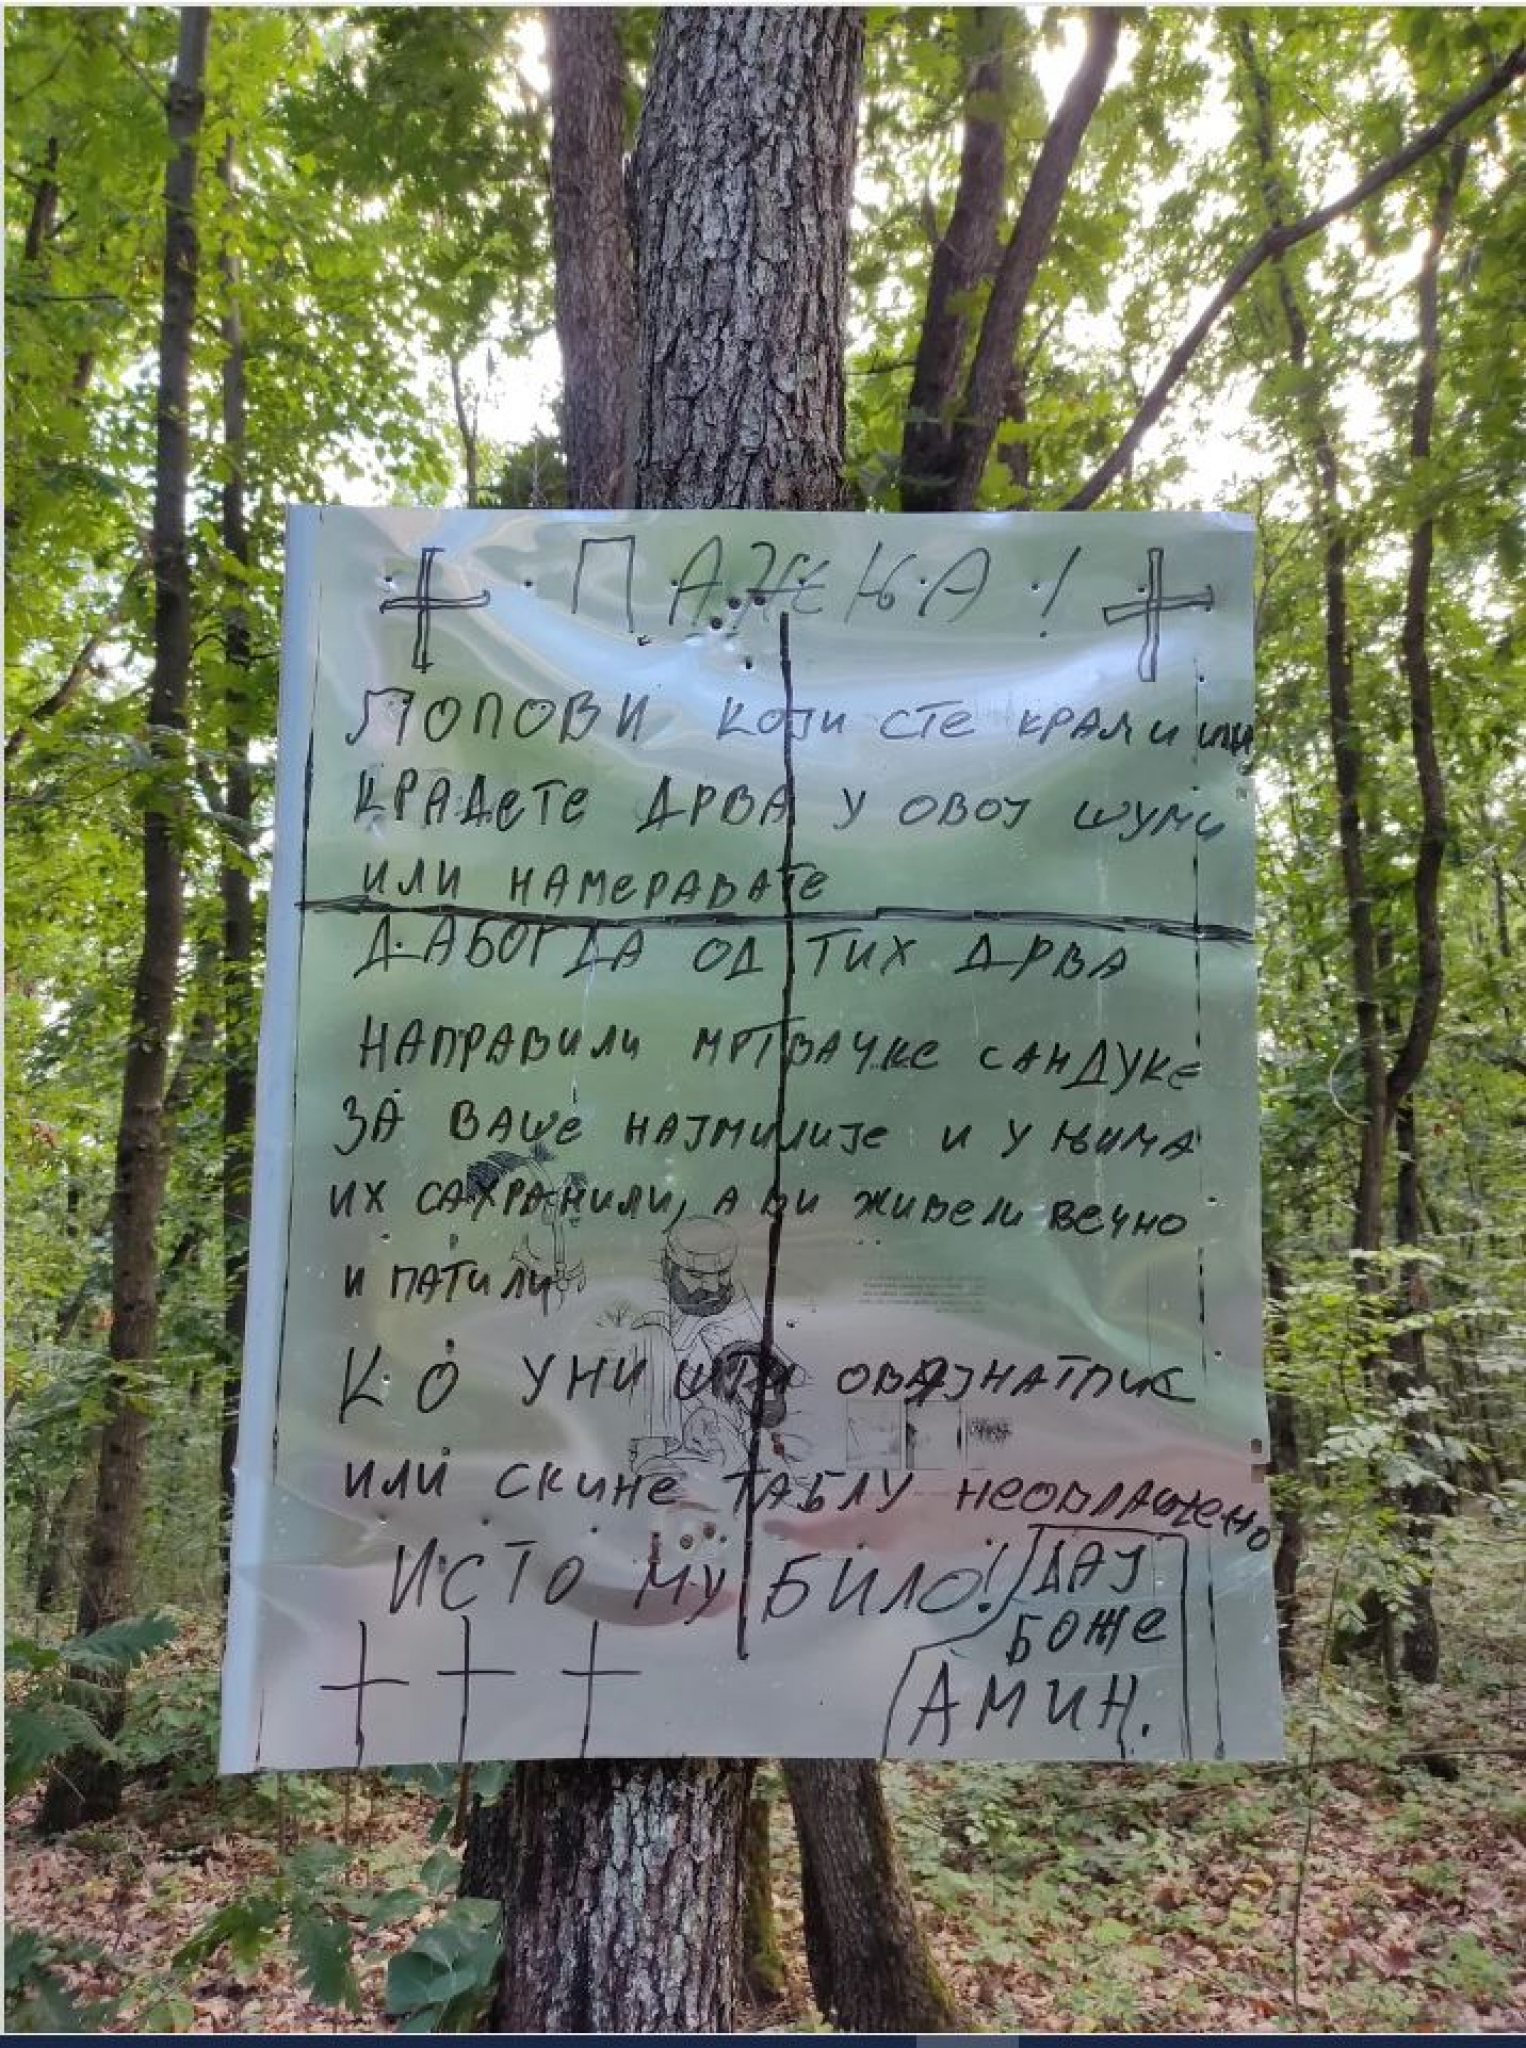 ПАЖЊА!
ЛОПОВИ КОЈИ СТЕ КРАЛИ ИЛИ
КРАДЕТЕ ДРВА У ОВОЈ ШУМИ
ИЛИ НАМЕРАВАТЕ
ДАБОГДА ОД ТИХ ДРВА
НАПРАВИЛИ МРТВАЧКЕ САНДУКЕ
ЗА ВАШЕ НАЈМИЛИЈЕ И У ЊИМА
ИХ САХРАНИЛИ, А ВИ ЖИВЕЛИ ВЕЧНО
И ПАТИЛИ
КО УНИШТИ ОВАЈ НАТПИС
ИЛИ СКИНЕ ТАБЛУ НЕОВЛАШЋЕНО
ИСТО МУ БИЛО!
ДАЈ
БОЖЕ
АМИН.